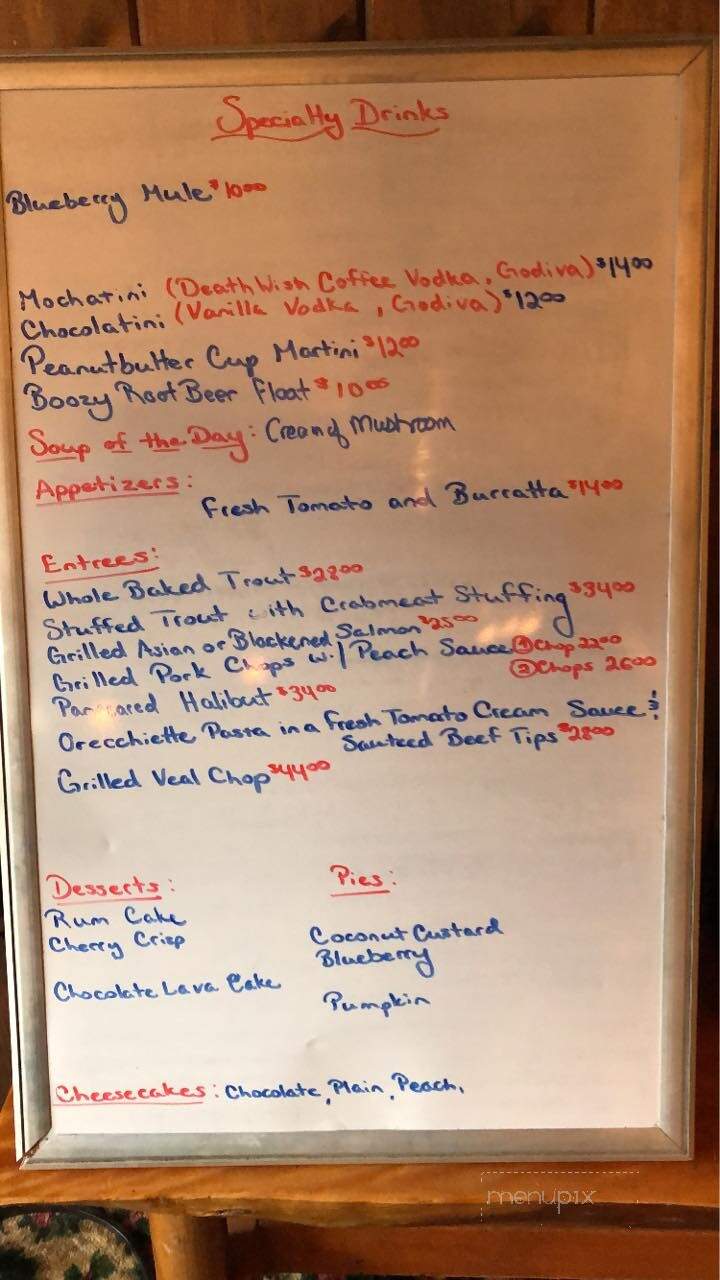 Specialty Drinks
Blueberry Mule $10.00
Mochatini (Death Wish Coffee Vodka, Godiva) $14.00
Chocolatini (Vanilla Vodka, Godiva) $12.00
Peanutbutter Cup Martini $12.00
Boozy Root Beer Float $10.00
Soup of the Day: Cream of Mushroom
Appetizers:
Fresh Tomato and Burratta $14.00
Entrees:
Whole Baked Trout $28.00
Stuffed Trout with Crabmeat Stuffing $34.00
Grilled Asian or Blackened Salmon $25.00
Grilled Pork Chops w/ Peach Sauce ① Chop 22.00
② Chops 26.00
Halibut $34.00
Orecchiette Pasta in a Fresh Tomato Cream Sauce &
Sauteed Beef Tips $28.00
Grilled Veal Chop $44.00
Desserts: Pies:
Rum Cake
Cherry Crisp Coconut Custard
Blueberry
Chocolate Lava Cake Pumpkin
Cheesecakes: Chocolate, Plain, Peach,
menupix